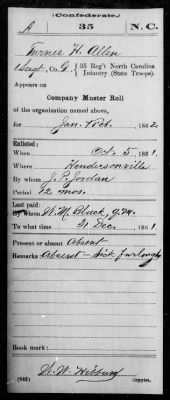 (Confederate.)
A 35 N.C.
Turner H. Allen
1 Sergt, Co. G, 35 Reg't North Carolina
Infantry (State Troops).
Appears on
Company Muster Roll
of the organization named above,
for Jan. & Feb. 1862.
Enlisted:
When Oct. 5, 1861.
Where Hendersonville
By whom J. P. Jordan
Period 12 mos.
Last paid:
By whom W. M. Black, q.m.
To what time 31 Dec. 1861
Present or absent Absent
Remarks: Absent - Sick furlough
Book mark:
(642) Copyist.